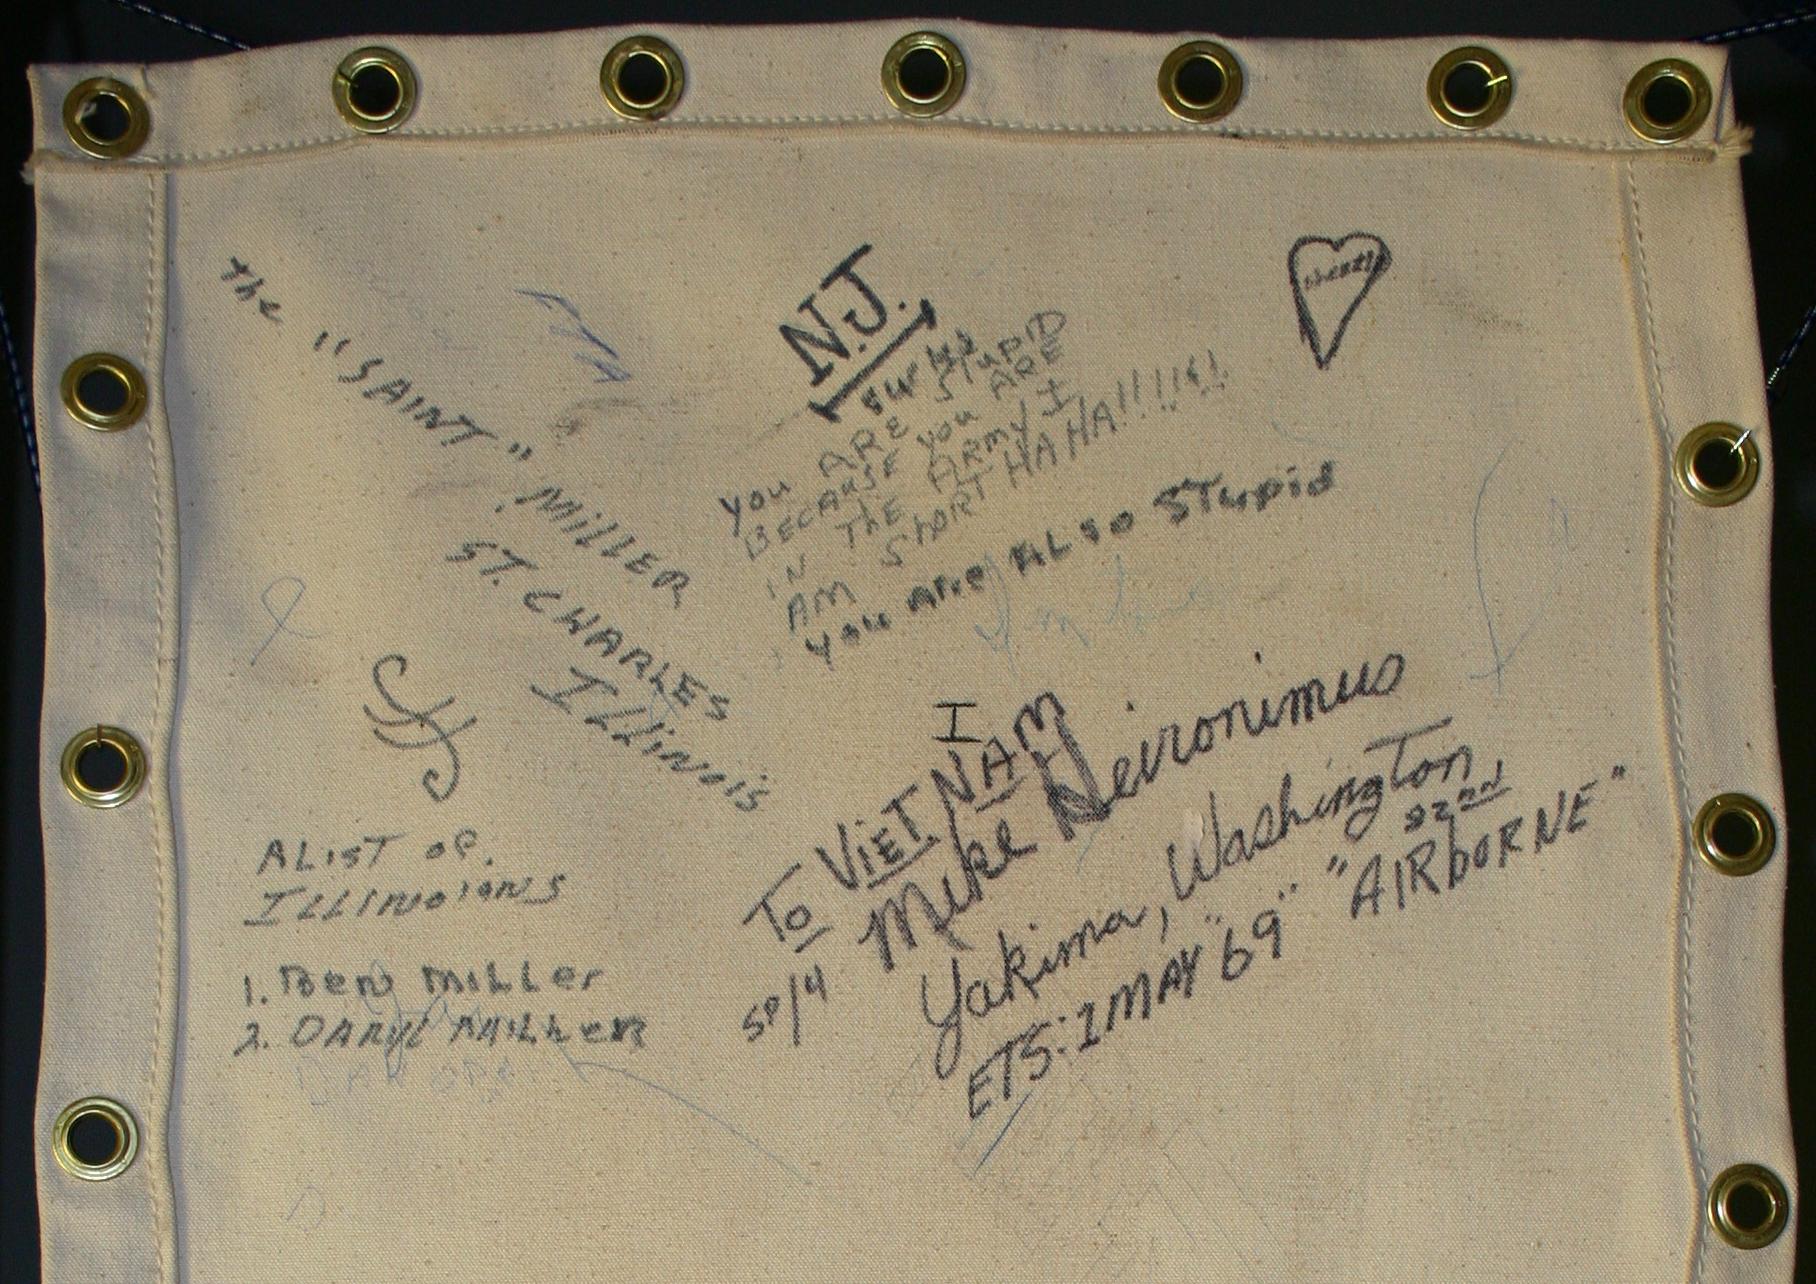 The "SAINT" MILLER
ST. CHARLES
ILLiNOiS
FTA
N.J.
YOU ARE STUPID
BECAUSE YOU ARE
IN THE ARMY I
AM SHORT HA HA!!!!!!
YOU ARE ALSO STUPID
A LIST OF.
ILLINOIANS
1. Ben MILLer
2. DARYL MILLER
I
TO VIET NAM
SP/4 Mike Heironimus
Yakima, Washington
ETS: 1 MAY "69" "AIRbORNE"